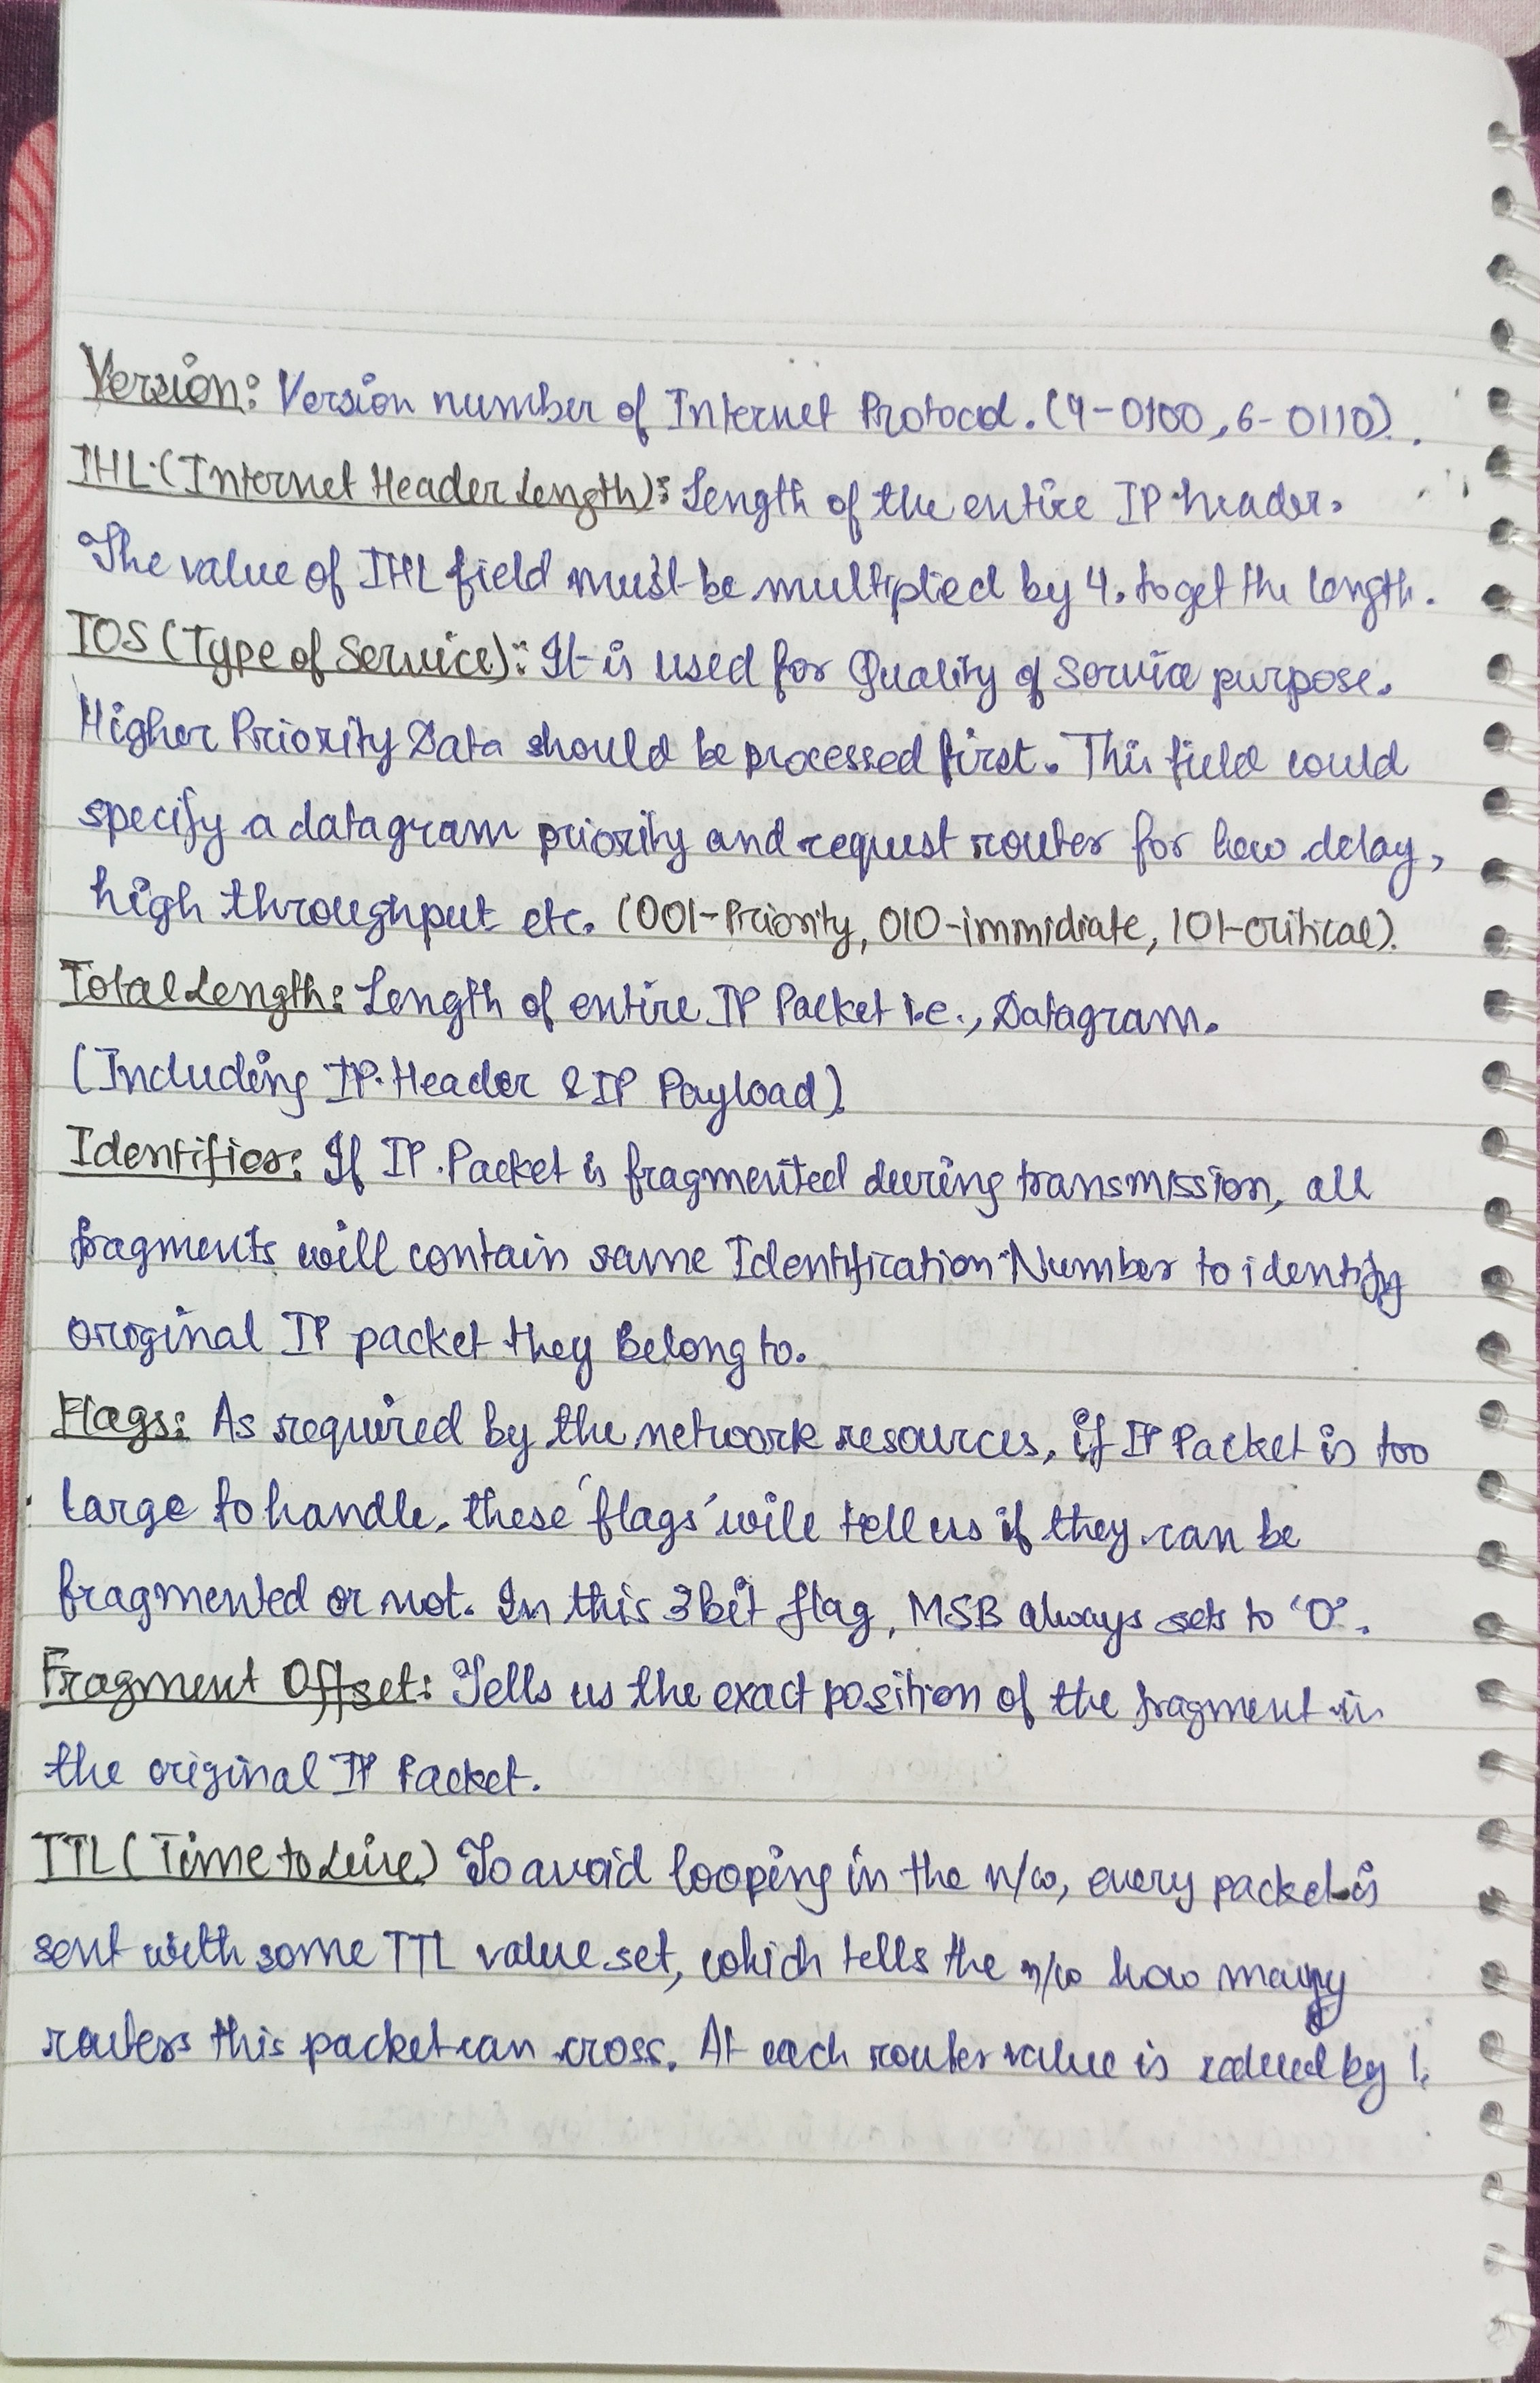 Version: Version number of Internet Protocol. (4-0100, 6-0110).
IHL (Internet Header Length): Length of the entire IP header.
The value of IHL field must be multiplied by 4. to get the length.
TOS (Type of Service): It is used for Quality of Service purpose.
Higher Priority Data should be processed first. This field could
specify a datagram priority and request router for low delay,
high throughput etc. (001-Priority, 010-immidiate, 101-critical).
Total Length: Length of entire IP Packet i.e., Datagram.
(Including IP Header & IP Payload).
Identifier: If IP Packet is fragmented during transmission, all
fragments will contain same Identification Number to identify
original IP packet they Belong to.
Flags: As required by the network resources, if IP Packet is too
large to handle, these 'flags' will tell us if they can be
fragmented or not. In this 3 bit flag, MSB always sets to '0'.
Fragment Offset: Tells us the exact position of the fragment in
the original IP Packet.
TTL (Time to Live) To avoid looping in the n/w, every packet is
sent with some TTL value set, which tells the n/w how many
routers this packet can cross. At each router value is reduced by 1.